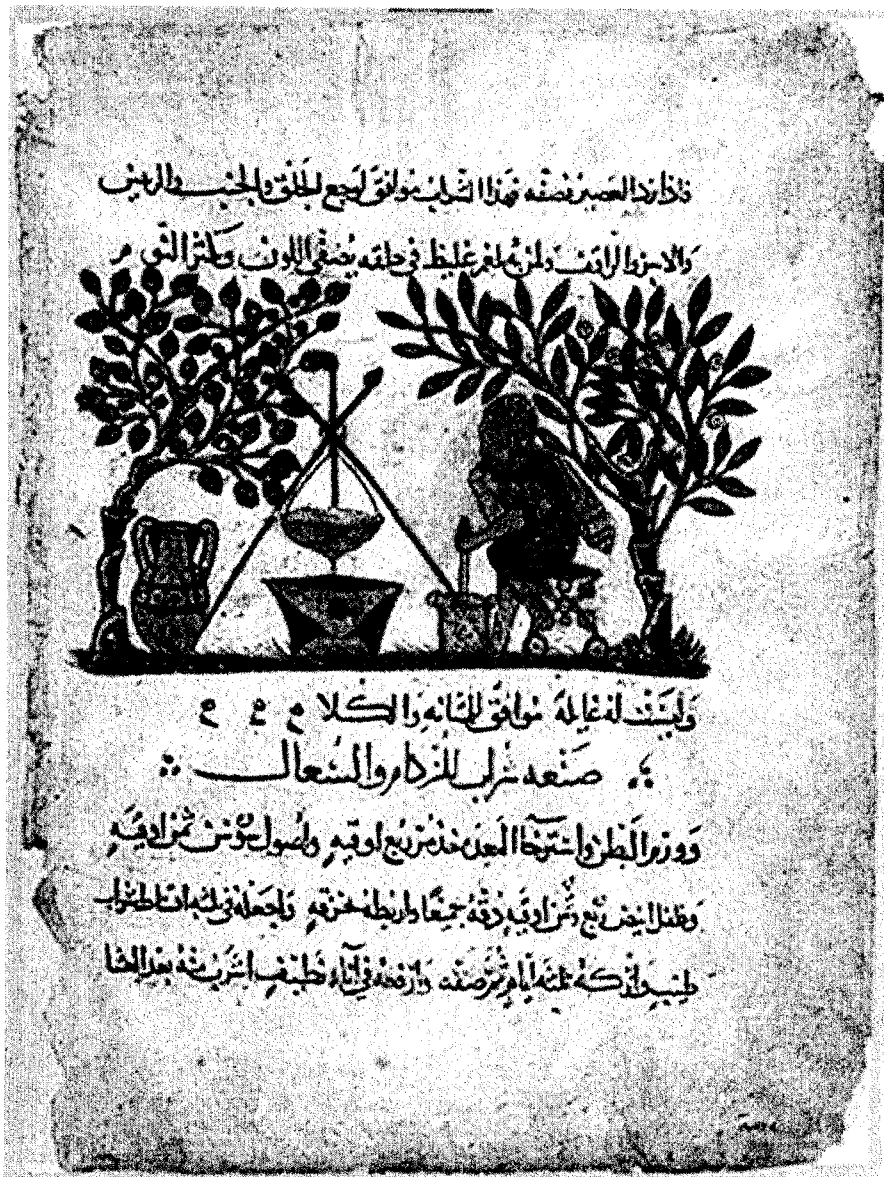 فاذا زد العصير نصفه فهذا الشراب موافق لوجع الحلق والجنب والريش
والابر ولمن بلغم غليظ في حلقه يصفي اللون
وليست له غايلة موافق للمثانه والكلا
صنعه شراب للزكام والسعال
وورم البطن واسترخا المعدة خذ مر ربع اوقيه واصول سوسن ثمن اوقيه
وفلفل ابيض ربع وثمن اوقيه دقه جميعا واربطه بخرقه واجعله في ثلثه اقساط شراب
طيب واتركه ثلثه ايام ثم صفه وارفعه في اناء نظيف اشرب منه بعد العشا